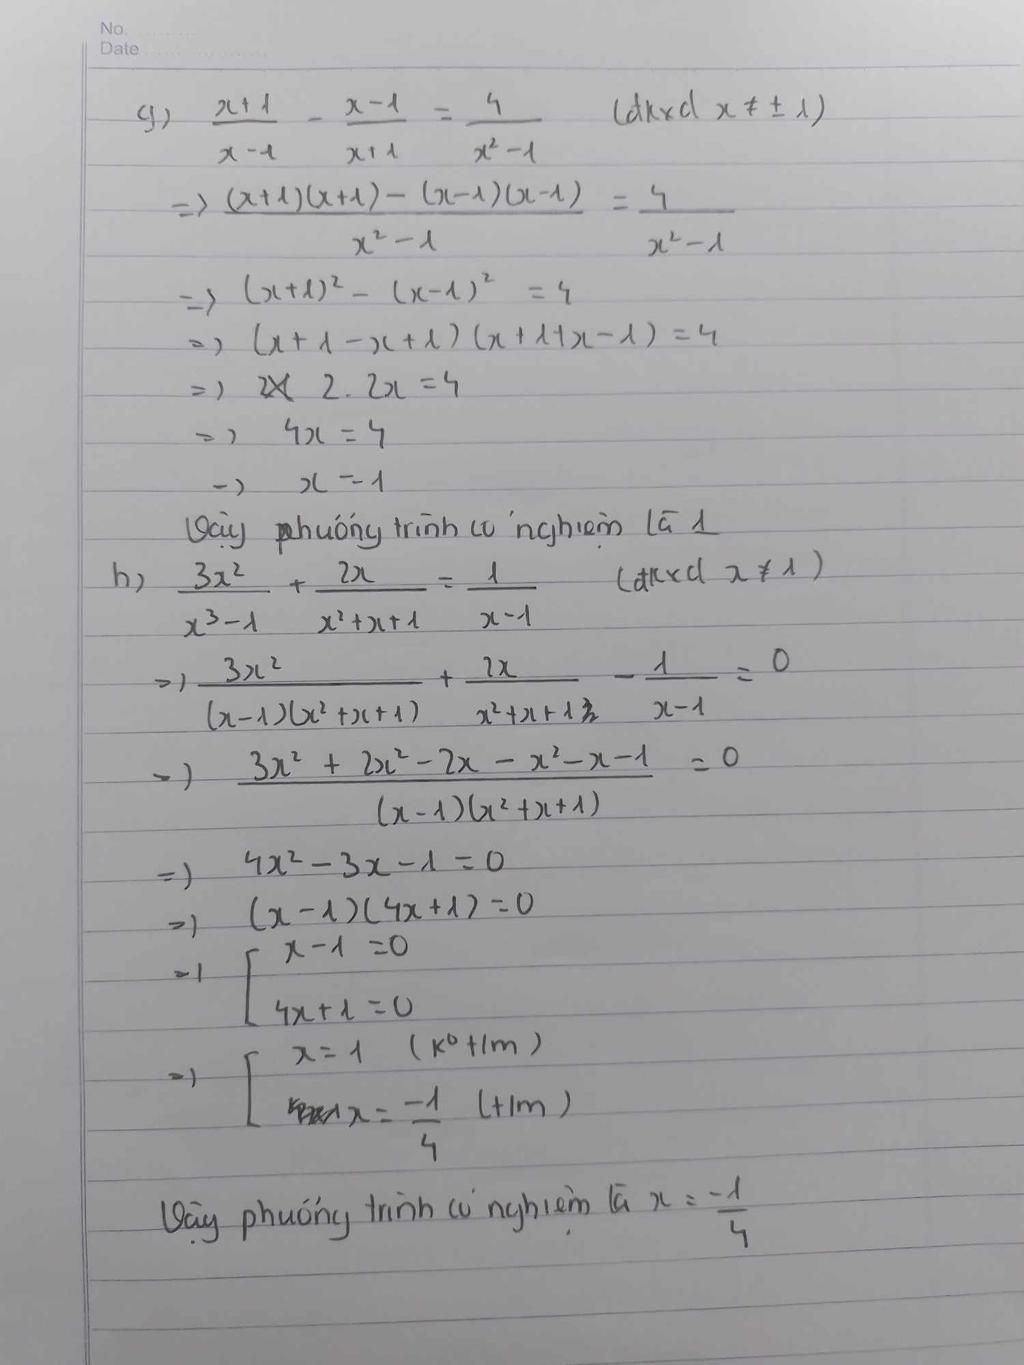 No.
Date
g) (x+1)/(x-1) - (x-1)/(x+1) = 4/(x²-1) (đkxđ x ≠ ± 1)
=> ((x+1)(x+1) - (x-1)(x-1))/(x²-1) = 4/(x²-1)
=> (x+1)² - (x-1)² = 4
=> (x+1-x+1)(x+1+x-1) = 4
=> 2.2x = 4
=> 4x = 4
=> x = 1
Vậy phương trình có nghiệm là 1
h) 3x²/(x³-1) + 2x/(x²+x+1) = 1/(x-1) (đkxđ x ≠ 1)
=> 3x²/((x-1)(x²+x+1)) + 2x/(x²+x+1) - 1/(x-1) = 0
=> (3x² + 2x² - 2x - x² - x - 1)/((x-1)(x²+x+1)) = 0
=> 4x² - 3x - 1 = 0
=> (x-1)(4x+1) = 0
=> [ x-1 = 0
4x+1 = 0
=> [ x = 1 (ko t/m)
x = -1/4 (t/m)
Vậy phương trình có nghiệm là x = -1/4